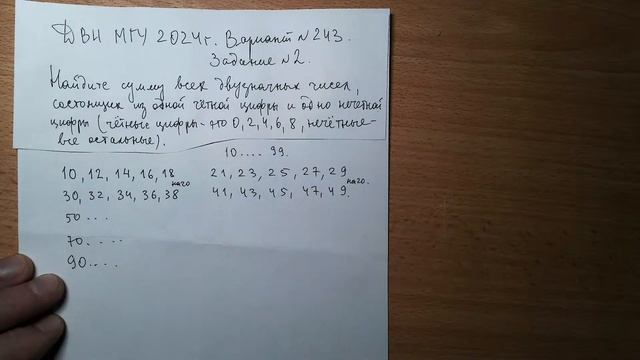 ДВИ МГУ 2024г. Вариант №243.
Задание №2.
Найдите сумму всех двузначных чисел,
состоящих из одной чётной цифры и одно нечетной
цифры (чётные цифры - это 0, 2, 4, 6, 8, нечётные -
все остальные).
10 .... 99.
10, 12, 14, 16, 18 21, 23, 25, 27, 29
30, 32, 34, 36, 38 41, 43, 45, 47, 49.
50 ...
70 ....
90 ....